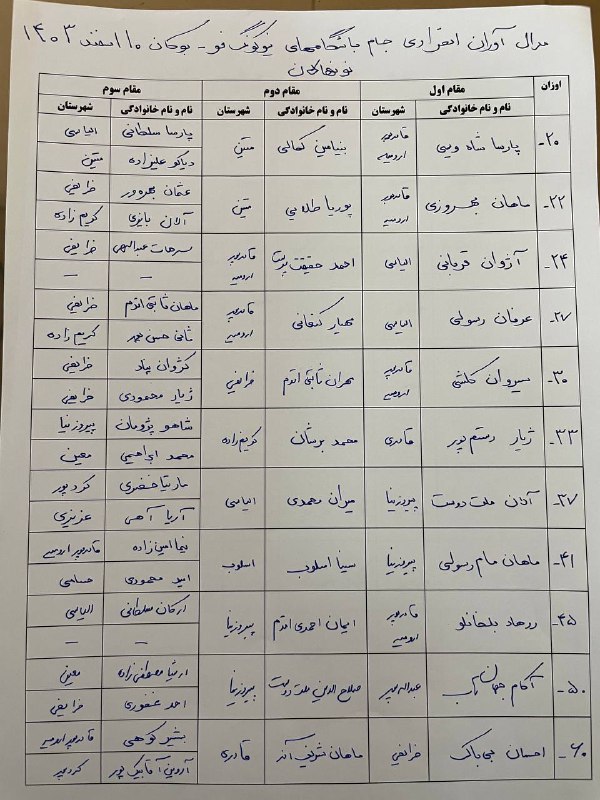 مدال آوران انفرادی جام باشگاههای یونگ فو - بوکان ۱۰ اسفند ۱۴۰۳
نونهالان
اوزان مقام اول مقام دوم مقام سوم
نام و نام خانوادگی شهرستان نام و نام خانوادگی شهرستان نام و نام خانوادگی شهرستان
۲۰- پارسا شاه ویسی قادرپور ارومیه بنیامین کمالی متین پارسا سلطانی الیاسی
دیاکو علیزاده متین
۲۲- ماهان بهروزی قادرپور ارومیه پوریا طلایی متین عثمان بهرور خرایفی
آلان بایزی کریم زاده
۲۴- آژوان قربانی الیاسی احمد حقیقت پرست قادرپور ارومیه سرحات عبداللهی خرایفی
— —
۲۷- عرفان رسولی الیاسی مهیار کنعانی قادرپور ارومیه ماهان ثابتی اقدم خرایفی
مانی حسن پور کریم زاده
۳۰- سیروان گلشی قادرپور ارومیه مهران ثابتی اقدم خرایفی کژوان خرایفی
ژیار محمودی خرایفی
۳۳- ژیار رستم پور قادری محمد کریم زاده شاهو پژومان پیروزنیا
محمد ابراهیمی معین
۳۷- آدان ملت دوست پیروزنیا میران محمدی الیاسی ماردین خضری کردپور
آریا عزیزی
۴۱- ماهان مام رسولی پیروزنیا سینا اسلوب اسلوب نیما امین زاده قادرپور ارومیه
امید محمودی حسامی
۴۵- قادرپور ارومیه ایمان احمدی اقدم پیروزنیا ارکان سلطانی الیاسی
— —
۵۰- آکام جهان تاب عبداله پور صلاح الدین ملت دوست پیروزنیا ارشیا مصطفی زاده معین
احد غفوری خرایفی
۶۰- احسان بی باک خرایفی ماهان شریفی آذر قادری بشیر کوهی قادرپور ارومیه
آروین آقابیک پور کردپور